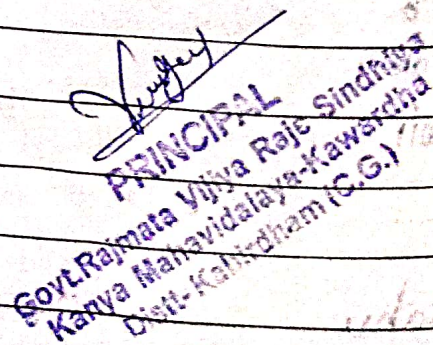 PRINCIPAL
Govt.Rajmata Vijya Raje Sindhiya
Kanya Mahavidalaya-Kawardha
Distt-Kabirdham (C.G.)